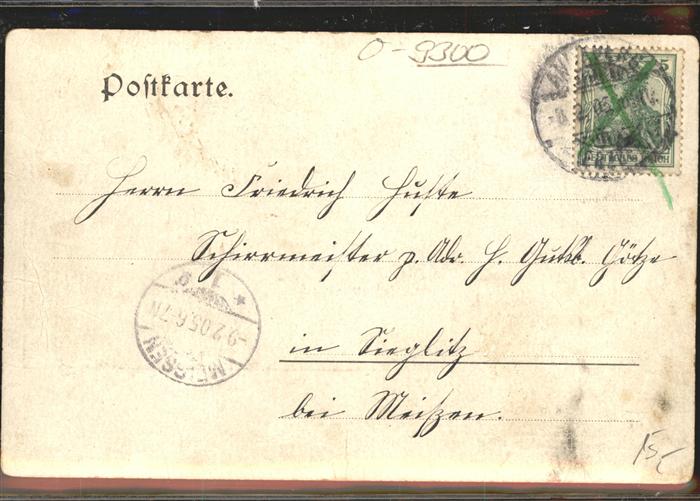 O-9300
Postkarte.
5
DEUTSCHES REICH
Herrn Friedrich Huste
Schirrmeister p. Adr. H. Gutsb. Götze
in Sieglitz
bei Meißen.
MEISSEN
-9.2.05.6-7N.
* 1 g
15,-